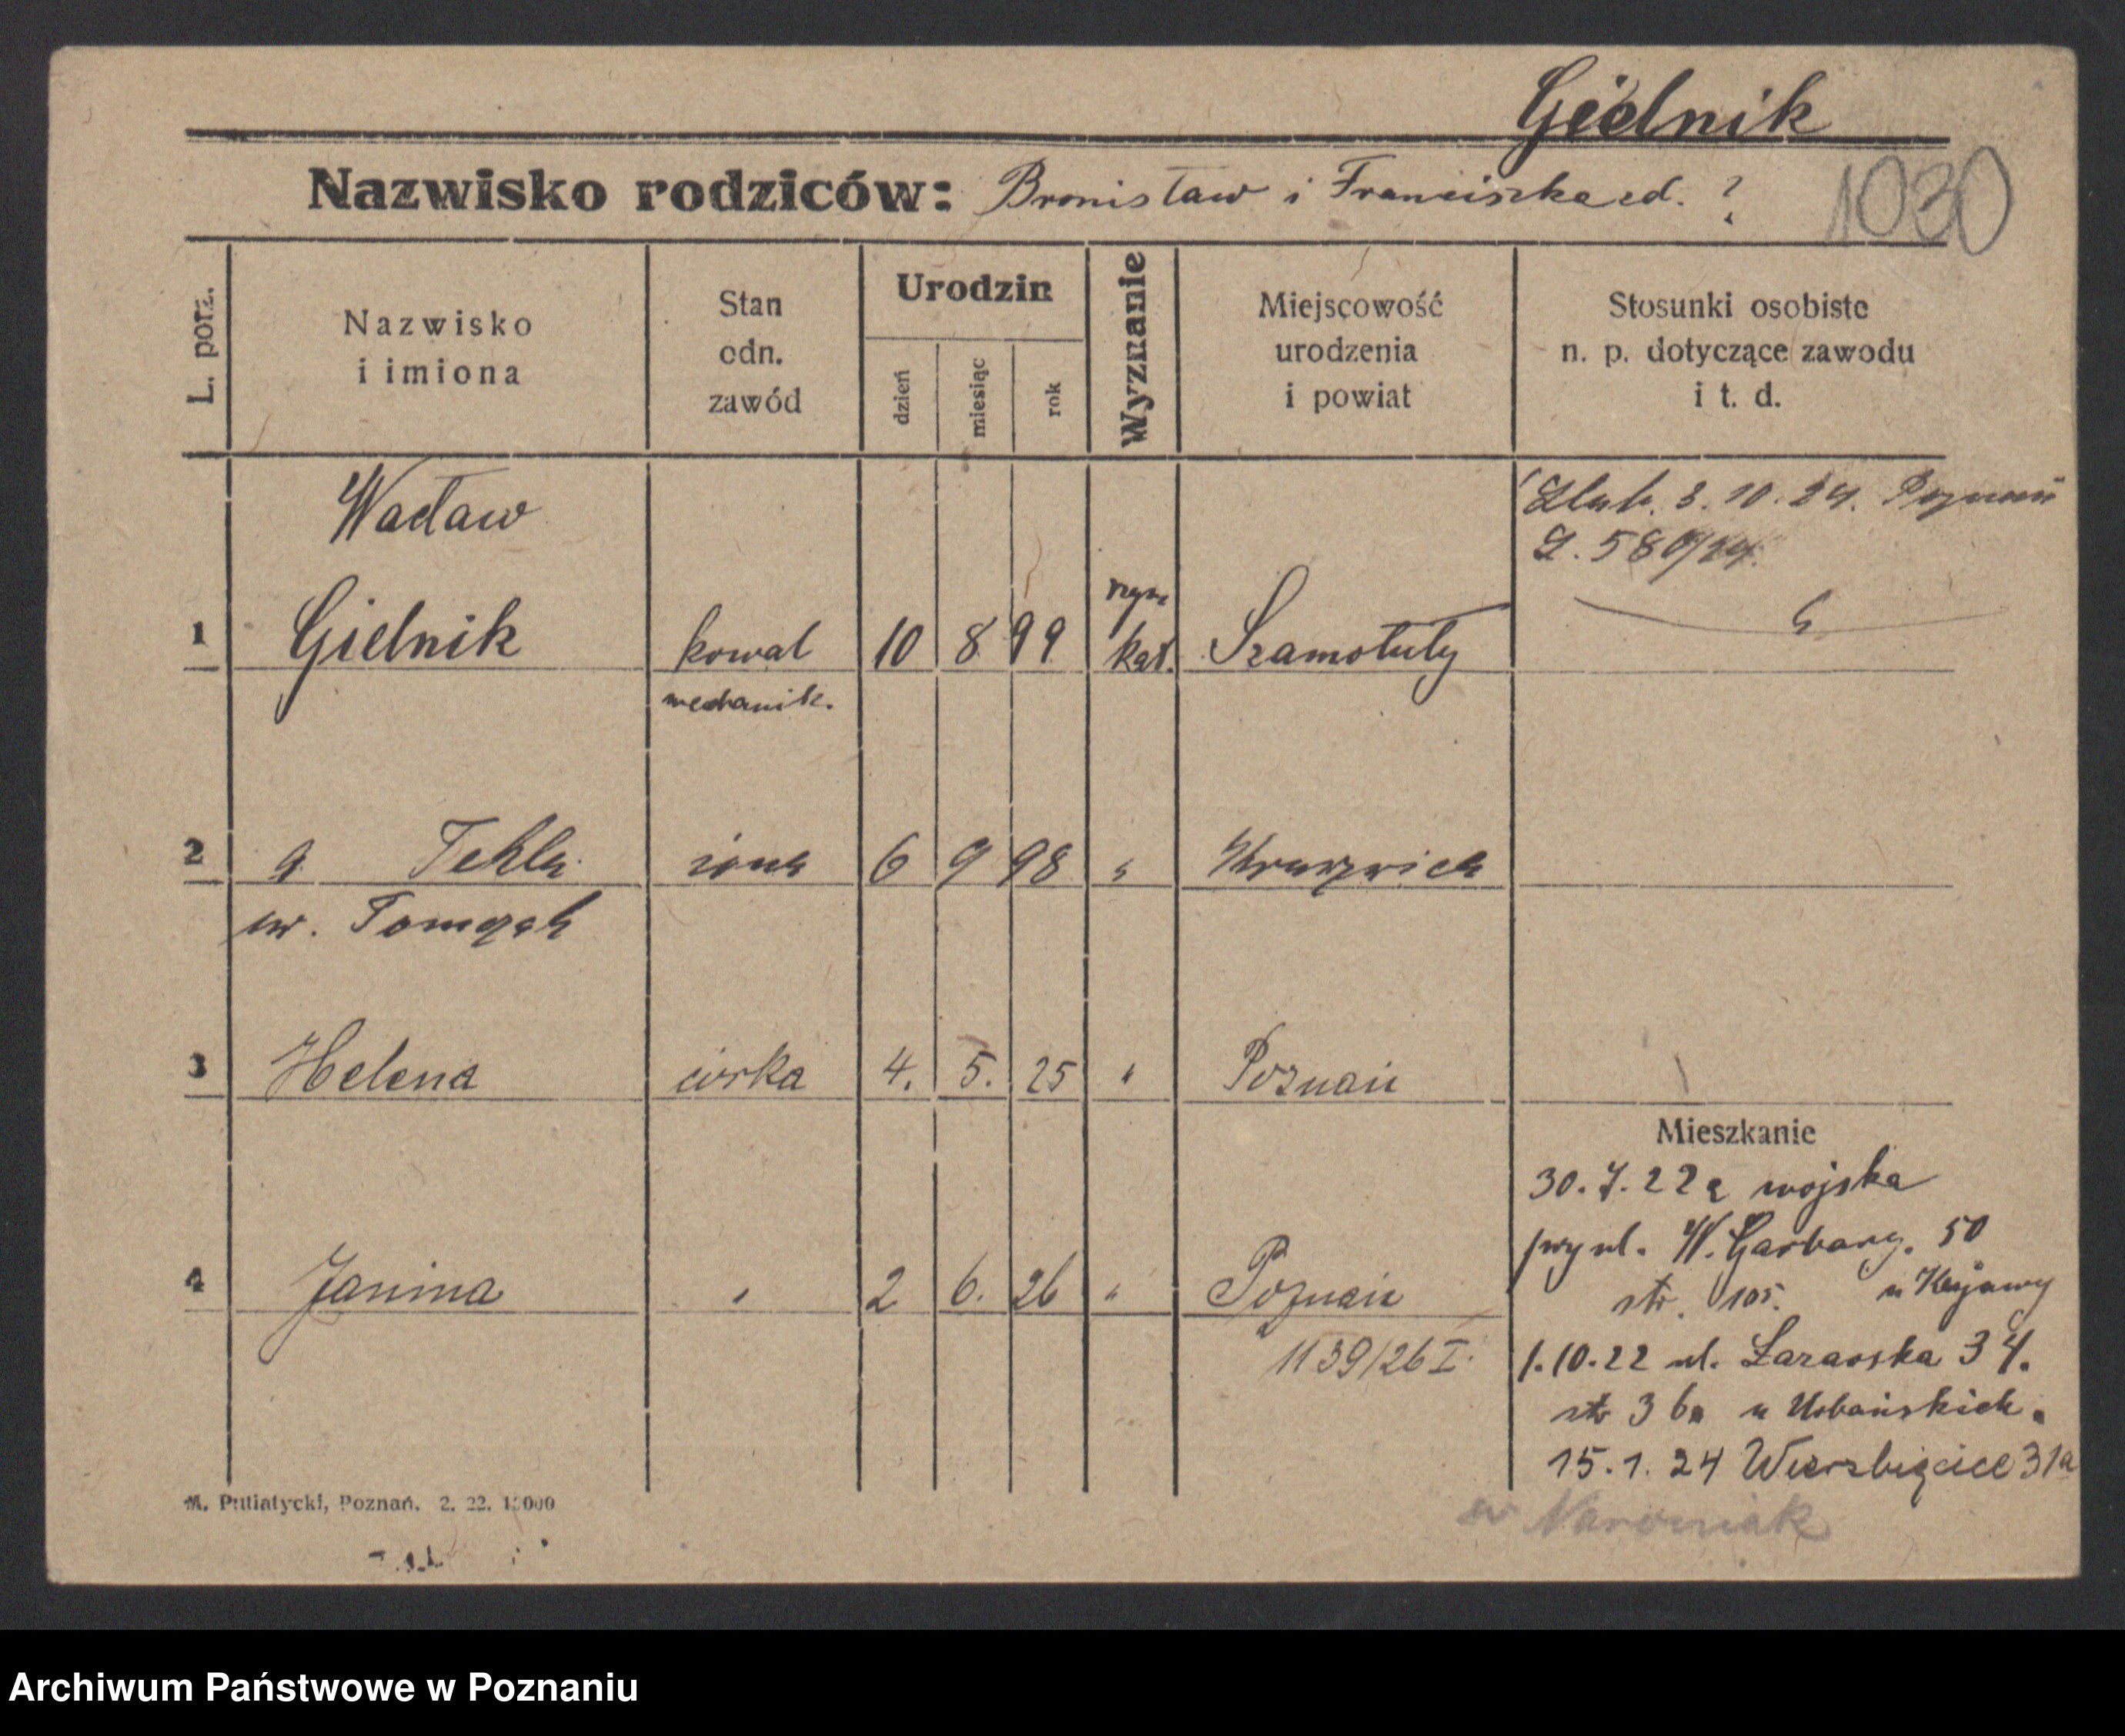 Gielnik
Nazwisko rodziców: Bronisław i Franciszka zd. ?
1030
L. porz.
Nazwisko
i imiona
Stan
odn.
zawód
Urodzin
dzień
miesiąc
rok
Wyznanie
Miejscowość
urodzenia
i powiat
Stosunki osobiste
n. p. dotyczące zawodu
i t. d.
Wacław
Ślub. 3. 10. 24. Poznań
1 Gielnik kowal 10 8 99 rzym kat. Szamotuły
mechanik.
2 Tekla żona 6 9 98 " Kruszwica
ur.
3 Helena córka 4. 5. 25 " Poznań
Mieszkanie
30. 7. 22 z wojska
przy ul. W. Garbary. 50
str. 105. u Kujawy
4 Janina " 2 6. 26 " Poznań
1139/26 I.
1. 10. 22 ul. 34.
str 36a u Urbańskich.
15. 1. 24 Wierzbięcice 31a
M. Putiatycki, Poznań. 2. 22.
Archiwum Państwowe w Poznaniu